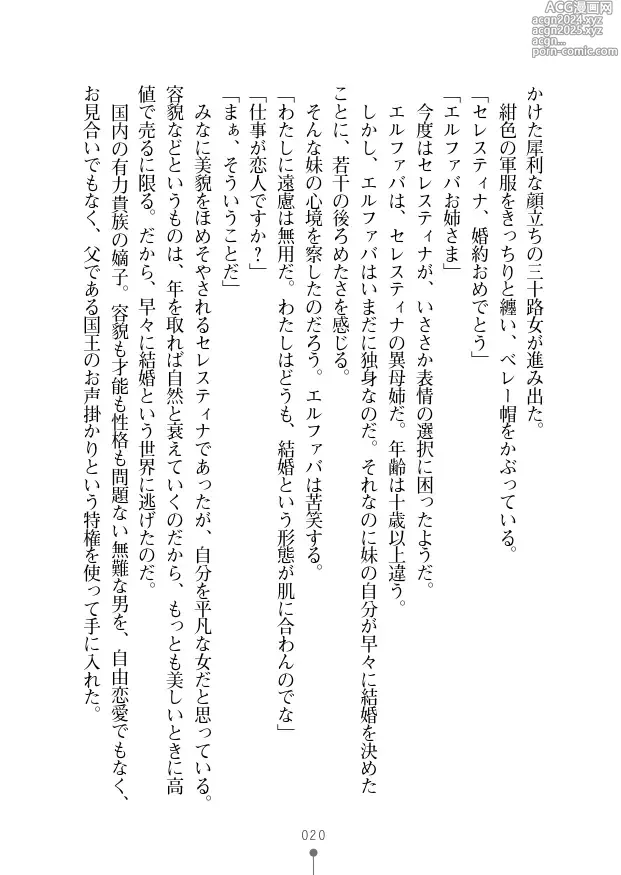 ACG漫画网
acgn2024.xyz
acgn2025.xyz
acgn...
porn-comic.com
かけた犀利な顔立ちの三十路女が進み出た。
紺色の軍服をきっちりと纏い、ベレー帽をかぶっている。
「セレスティナ、婚約おめでとう」
「エルファバお姉さま」
今度はセレスティナが、いささか表情の選択に困ったようだ。
エルファバは、セレスティナの異母姉だ。年齢は十歳以上違う。
しかし、エルファバはいまだに独身なのだ。それなのに妹の自分が早々に結婚を決めた
ことに、若干の後ろめたさを感じる。
そんな妹の心境を察したのだろう。エルファバは苦笑する。
「わたしに遠慮は無用だ。わたしはどうも、結婚という形態が肌に合わんのでな」
「仕事が恋人ですか？」
「まぁ、そういうことだ」
みなに美貌をほめそやされるセレスティナであったが、自分を平凡な女だと思っている。
容貌などというものは、年を取れば自然と衰えていくのだから、もっとも美しいときに高
値で売るに限る。だから、早々に結婚という世界に逃げたのだ。
国内の有力貴族の嫡子。容貌も才能も性格も問題ない無難な男を、自由恋愛でもなく、
お見合いでもなく、父である国王のお声掛かりという特権を使って手に入れた。
020